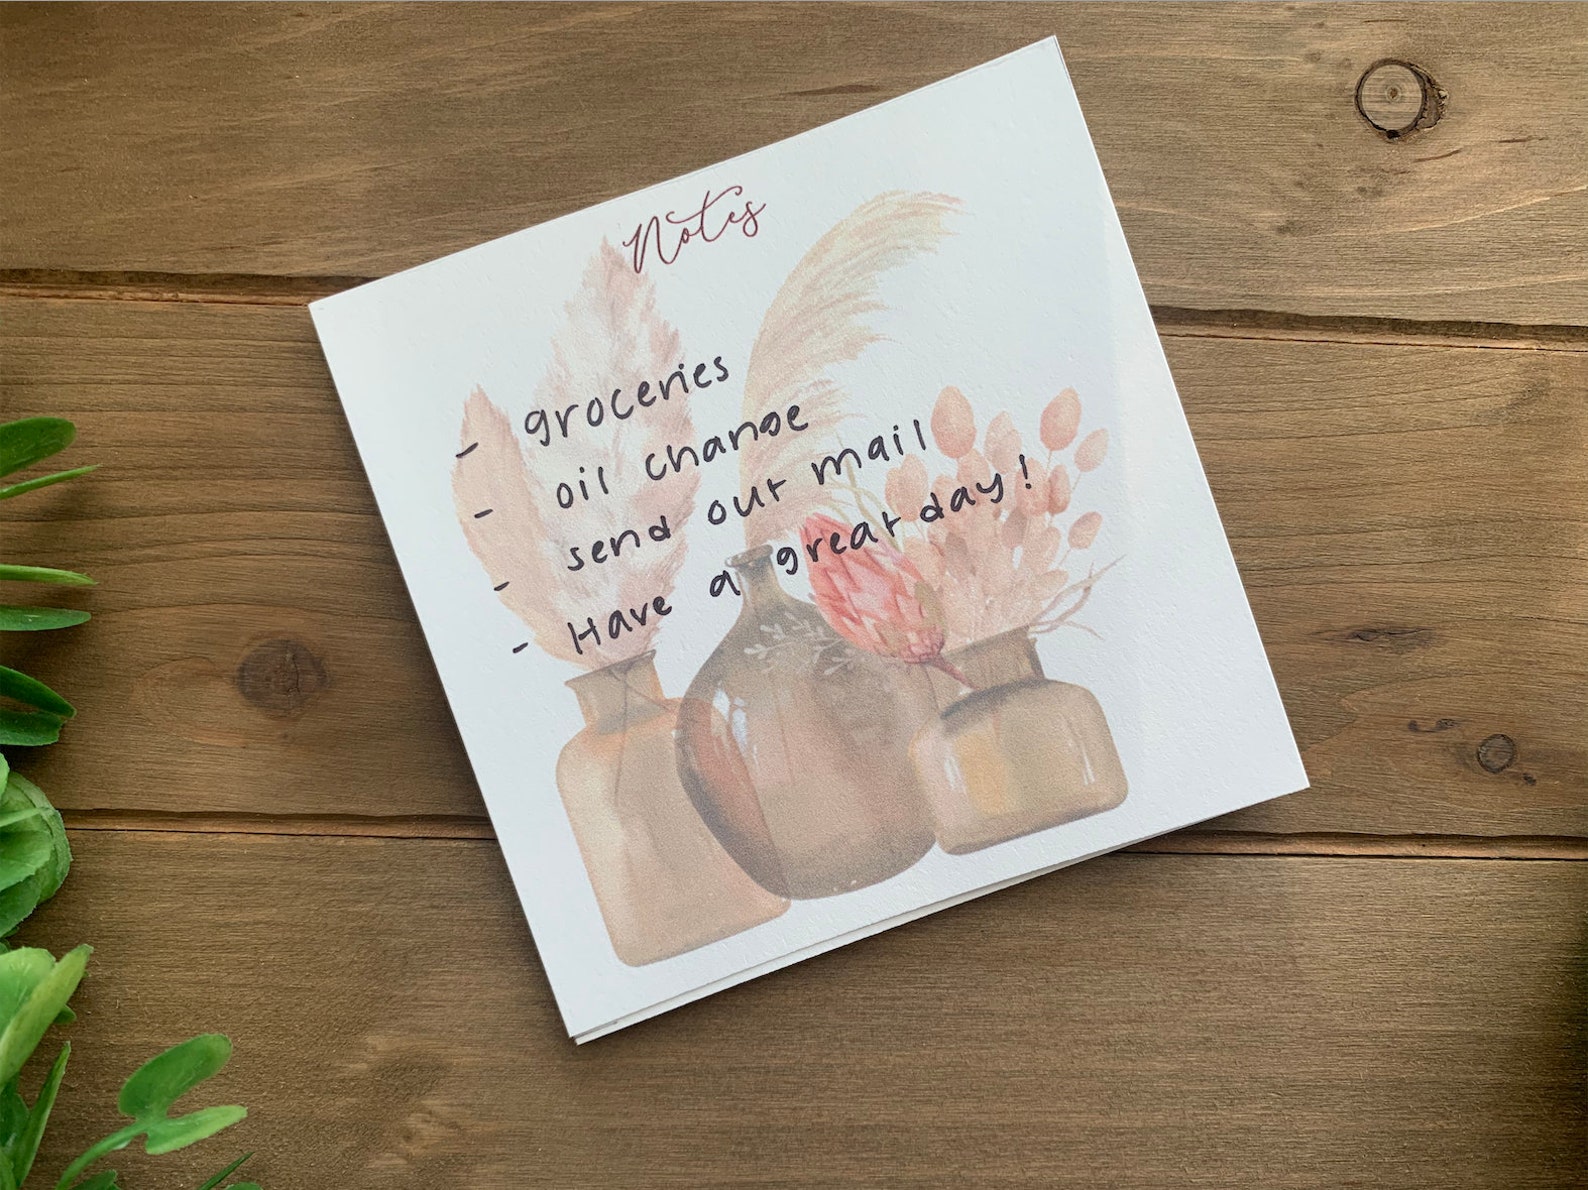 Notes
- groceries
- oil change
- send out mail
- Have a great day!